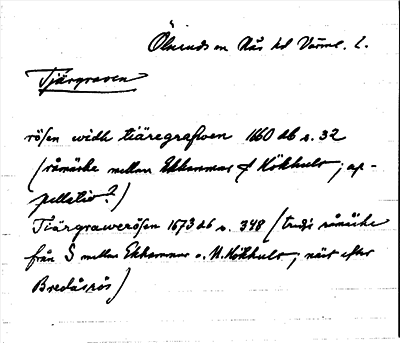 Ölseruds sn Näs hd Värml. l.
Tjärgraven
rösen widh tiäregrafwen 1660 db s. 32
(råmärke mellan Ekhammar & Kökhult; ap-
pellativ?)
Tiärgrawerösen 1673 db s. 348 (tredje råmärke
från S mellan Ekhammar o. N. Kökhult; näst efter
Bredåsrös)